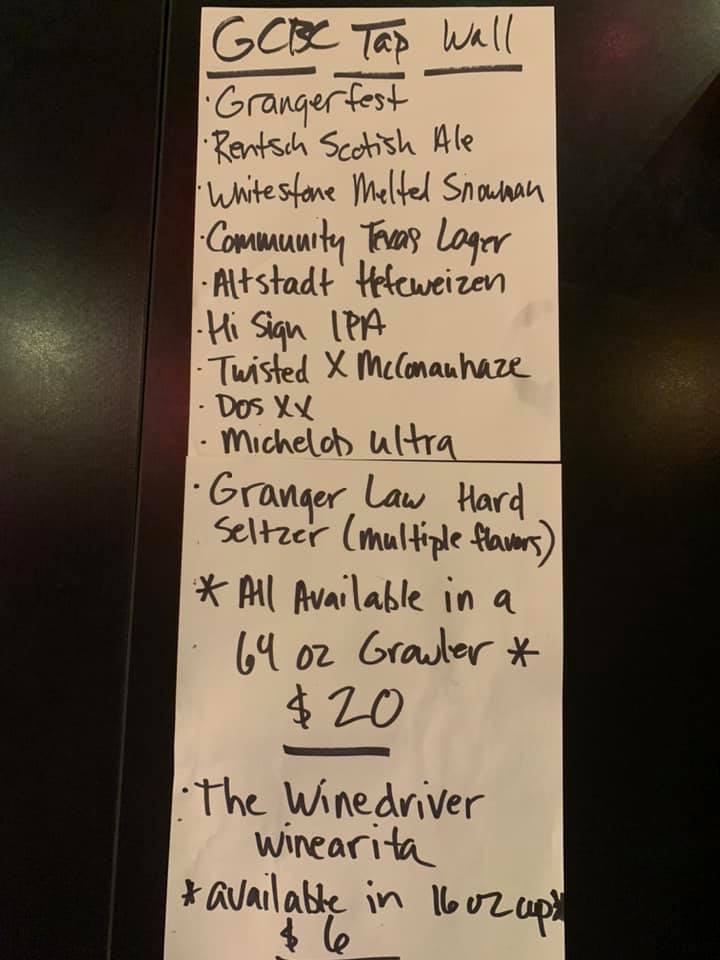 GCBC Tap Wall
· Grangerfest
· Rentsch Scotish Ale
· Whitestone Melted Snowman
· Community Texas Lager
· Altstadt Hefeweizen
· Hi Sign IPA
· Twisted X McConauhaze
· Dos XX
· Michelob ultra
· Granger Law Hard
Seltzer (multiple flavors)
* All Available in a
64 oz Growler *
$20
· The Winedriver
winearita
* available in 16 oz cup*
$6